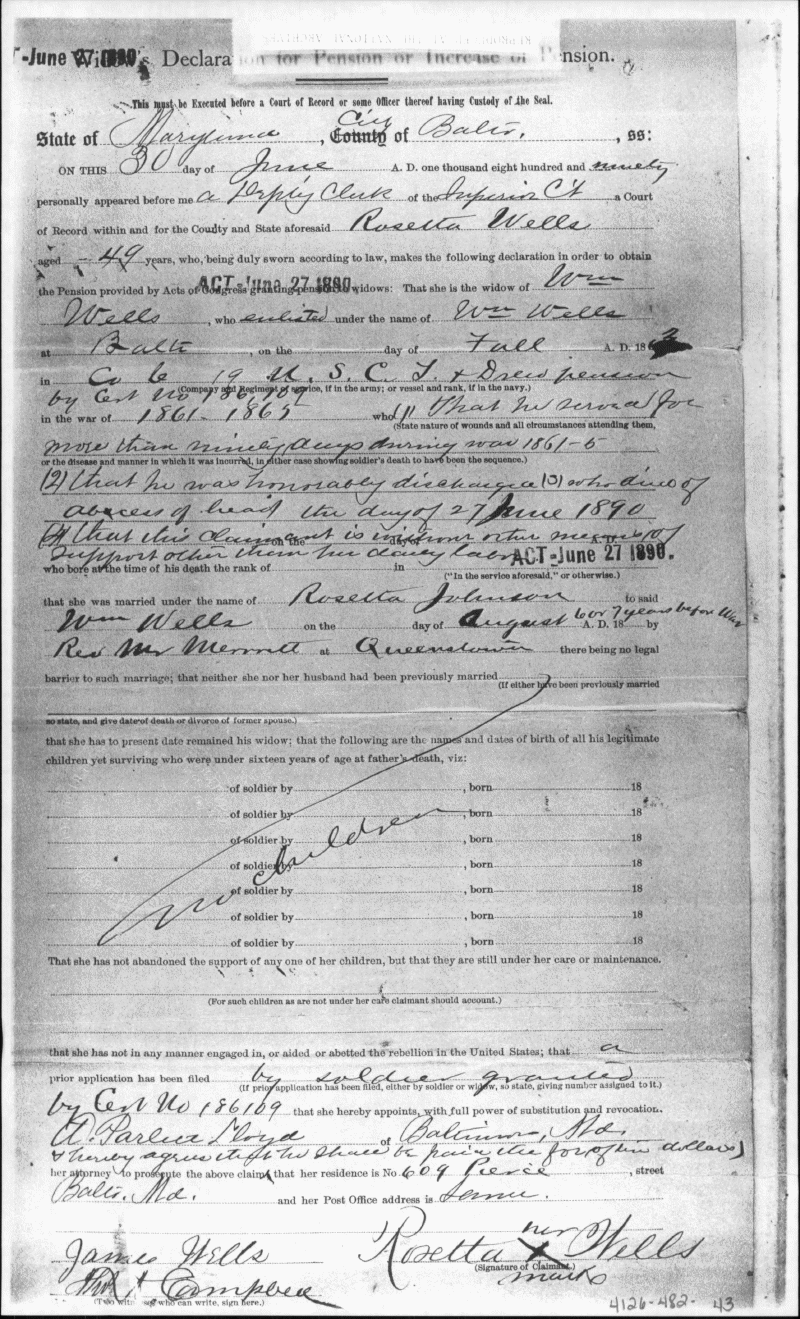 REPRODUCED AT THE NATIONAL ARCHIVES
-June 27 1890's Declaration for Pension or Increase of Pension.
This must be Executed before a Court of Record or some Officer thereof having Custody of the Seal.
State of Maryland, City County of Balto., ss:
ON THIS 30 day of June A. D. one thousand eight hundred and ninety
personally appeared before me a Deputy Clerk of the Superior Ct a Court
of Record within and for the County and State aforesaid Rosetta Wells
aged 49 years, who, being duly sworn according to law, makes the following declaration in order to obtain
ACT-June 27 1890.
the Pension provided by Acts of Congress granting pension to widows: That she is the widow of Wm
Wells, who enlisted under the name of Wm Wells
at Balto, on the day of Fall A. D. 1863
in Co C 19 U. S. C. T. & Drew pension
(Company and Regiment of service, if in the army; or vessel and rank, if in the navy.)
by Cert No 186,109
in the war of 1861-1865 who (1) That he served for
(State nature of wounds and all circumstances attending them,
more than ninety days during war 1861-5
or the disease and manner in which it was incurred, in either case showing soldier's death to have been the sequence.)
(2) that he was honorably discharged (3) who died of
abscess of head the day of 27 June 1890
(4) that this claimant is without other means of
on the day of
support other than her daily labor ACT-June 27 1890.
who bore at the time of his death the rank of in
("In the service aforesaid," or otherwise.)
that she was married under the name of Rosetta Johnson to said
Wm Wells on the day of August 6 or 7 years before War A. D. 18 by
Rev Mr Merritt at Queenstown there being no legal
barrier to such marriage; that neither she nor her husband had been previously married
(If either have been previously married
so state, and give date of death or divorce of former spouse.)
that she has to present date remained his widow; that the following are the names and dates of birth of all his legitimate
children yet surviving who were under sixteen years of age at father's death, viz:
of soldier by, born 18
of soldier by, born 18
of soldier by, born 18
of soldier by, born 18
of soldier by, born 18
of soldier by, born 18
of soldier by, born 18
no children
That she has not abandoned the support of any one of her children, but that they are still under her care or maintenance.
(For such children as are not under her care claimant should account.)
that she has not in any manner engaged in, or aided or abetted the rebellion in the United States; that a
prior application has been filed by soldier granted
(If prior application has been filed, either by soldier or widow, so state, giving number assigned to it.)
by Cert No 186109 that she hereby appoints, with full power of substitution and revocation.
A. Parlett Lloyd of Baltimore, Md.
& hereby agrees that he shall be paid the fee of ten dollars
her attorney to prosecute the above claim; that her residence is No. 609 Pierce, street
Balto. Md. and her Post Office address is same.
Rosetta her X Wells
mark
(Signature of Claimant.)
James Wells
Campbell
(Two witnesses who can write, sign here.)
4126-482- 43